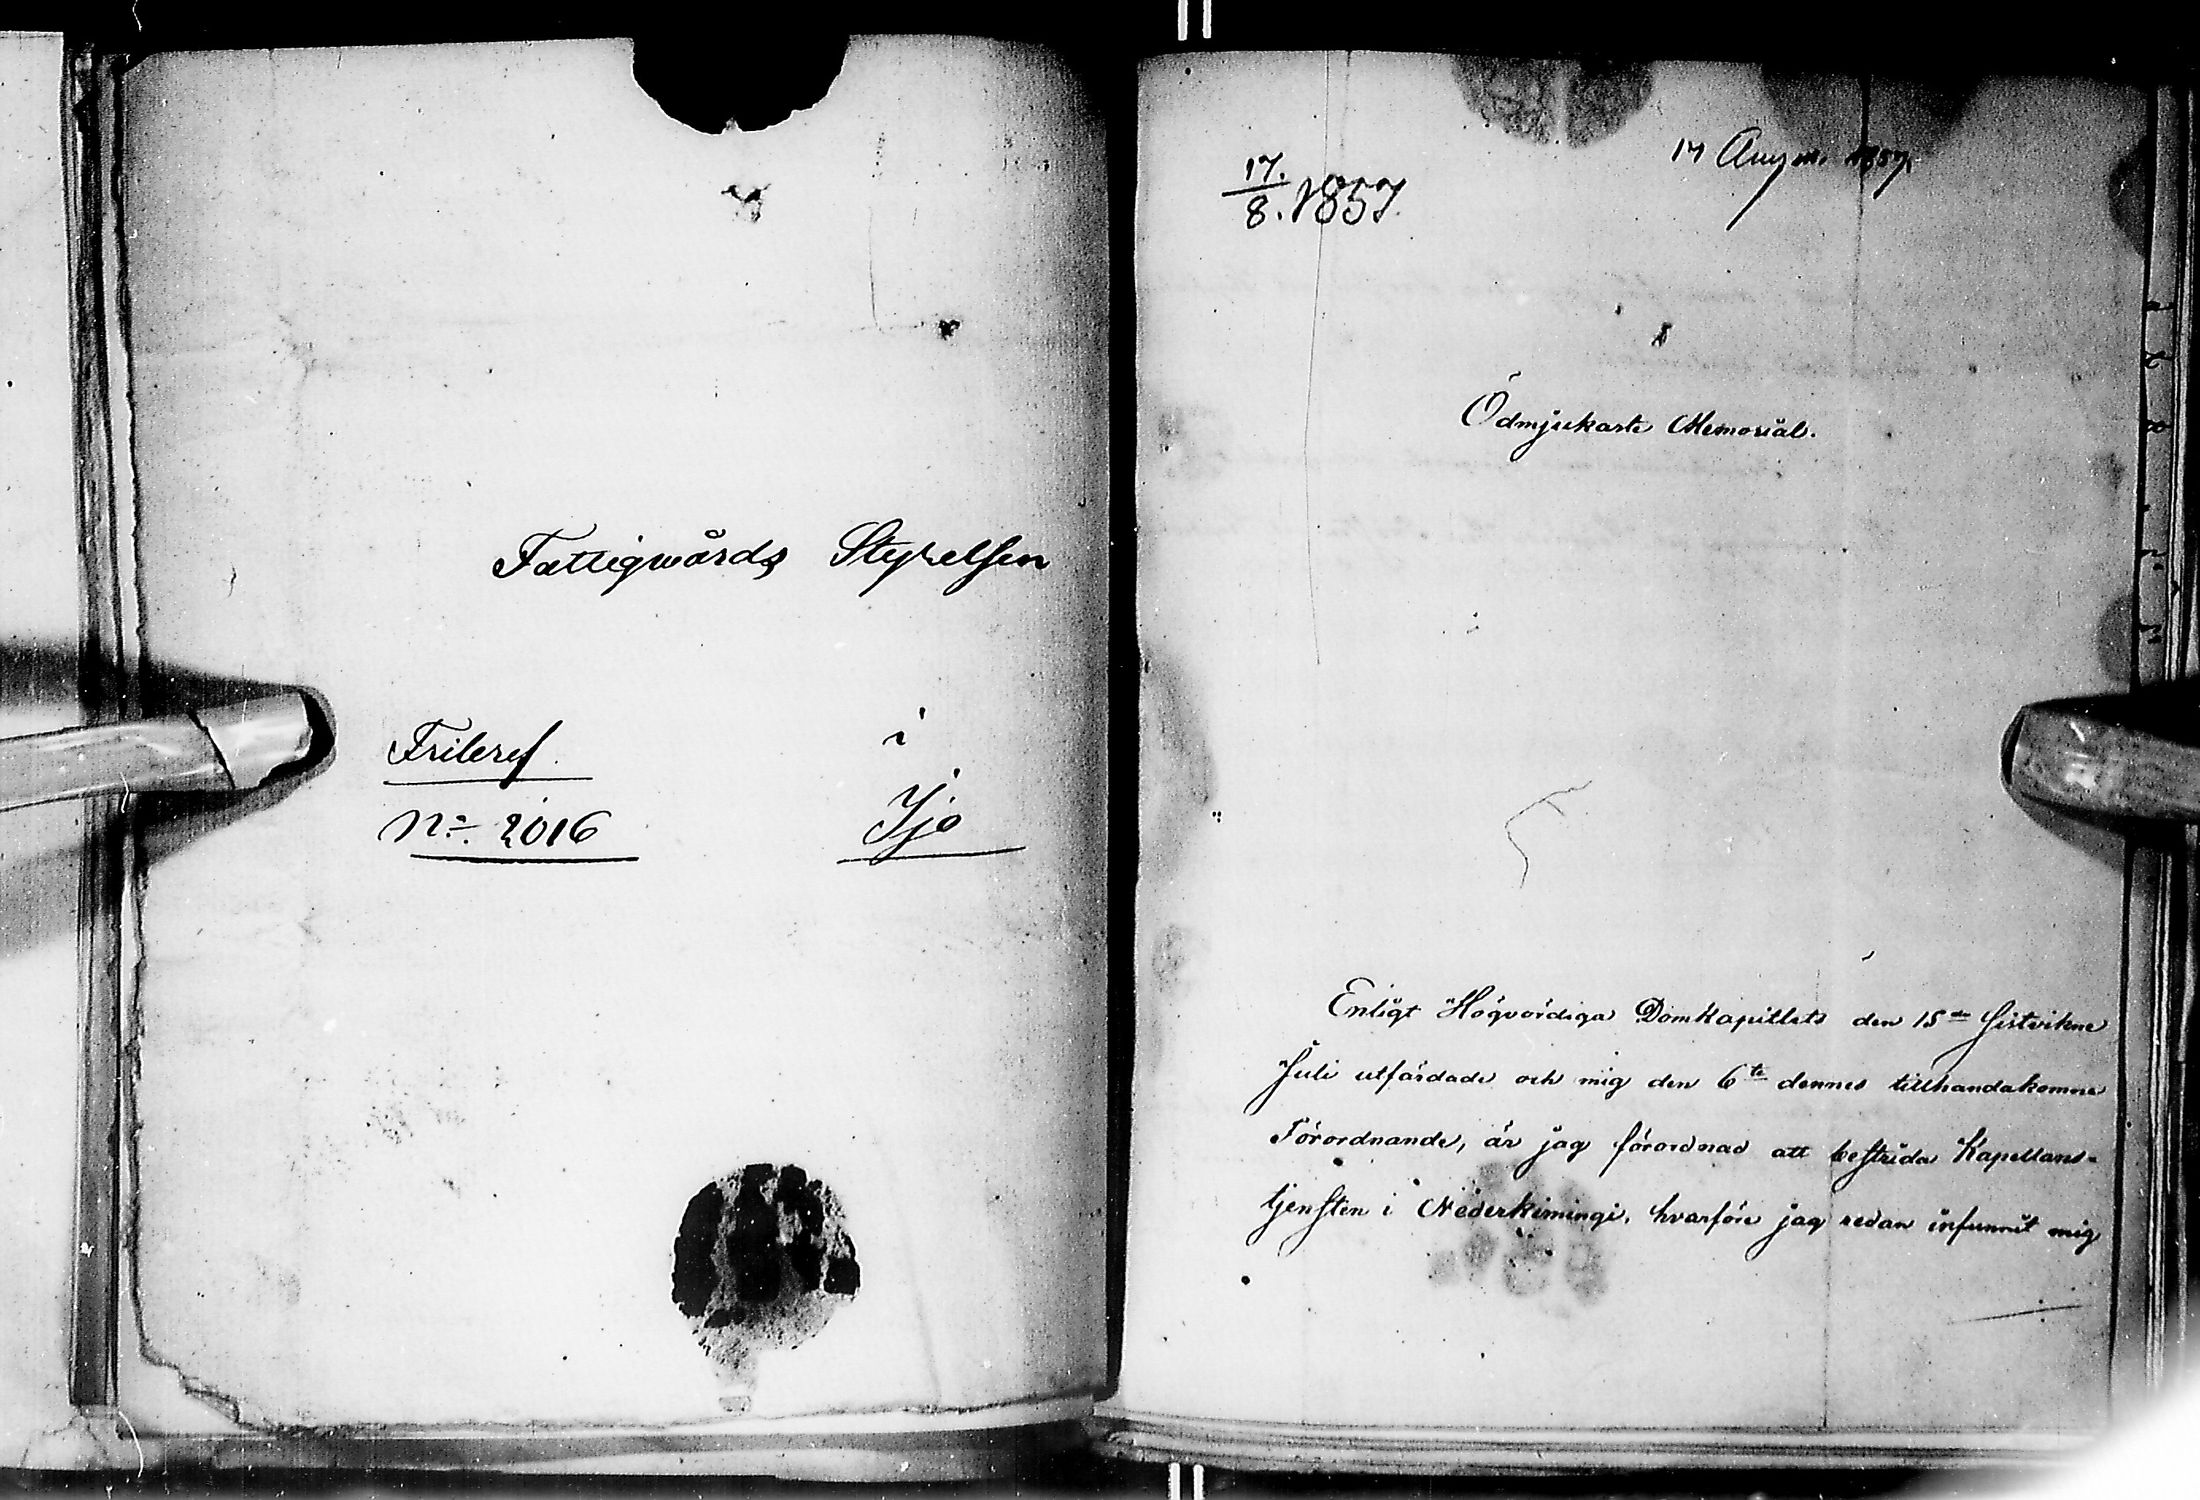 Fattigwårds Styrelsen
Fribref. i
No. 2016 Ijo
17./8. 1857.
17 Augusti 1857.
Ödmjukaste Memorial.
Enligt Högvördiga Domkapitlets den 15de sistvikne
Juli utfärdade och mig den 6te dennes tillhandakomne
Förordnande, är jag förordnad att bestrida Kapellans-
tjensten i Nederkimingi, hvarföre jag redan infunnit mig